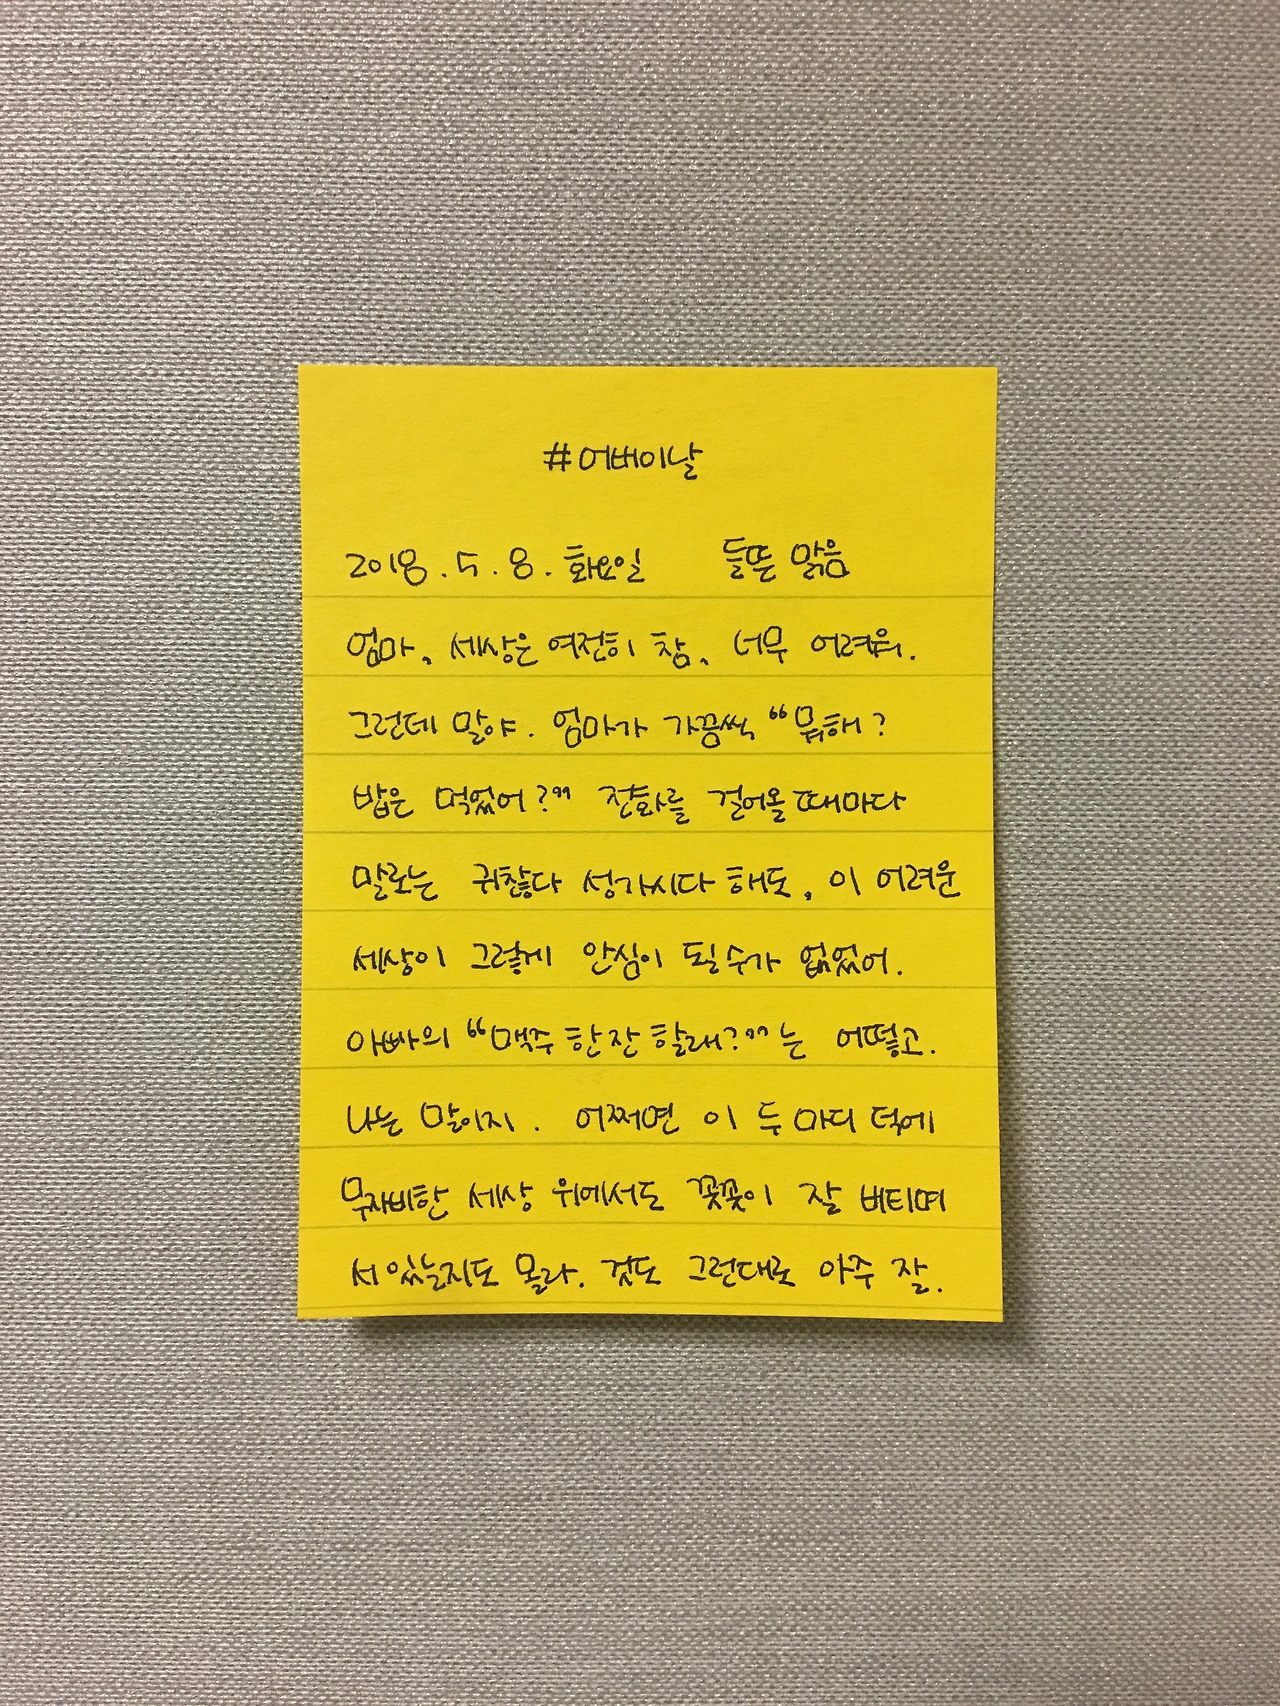 #어버이날
2018.5.8. 화요일 들뜬 맑음
엄마, 세상은 여전히 참, 너무 어려워.
그런데 말야. 엄마가 가끔씩 "뭐해?
밥은 먹었어?" 전화를 걸어올 때마다
말로는 귀찮다 성가시다 해도, 이 어려운
세상이 그렇게 안심이 될 수가 없었어.
아빠의 "맥주 한 잔 할래?"는 어떻고.
나는 말이지. 어쩌면 이 두 마디 덕에
무자비한 세상 위에서도 꽃꽃이 잘 버티며
서 있는지도 몰라. 것도 그런대로 아주 잘.